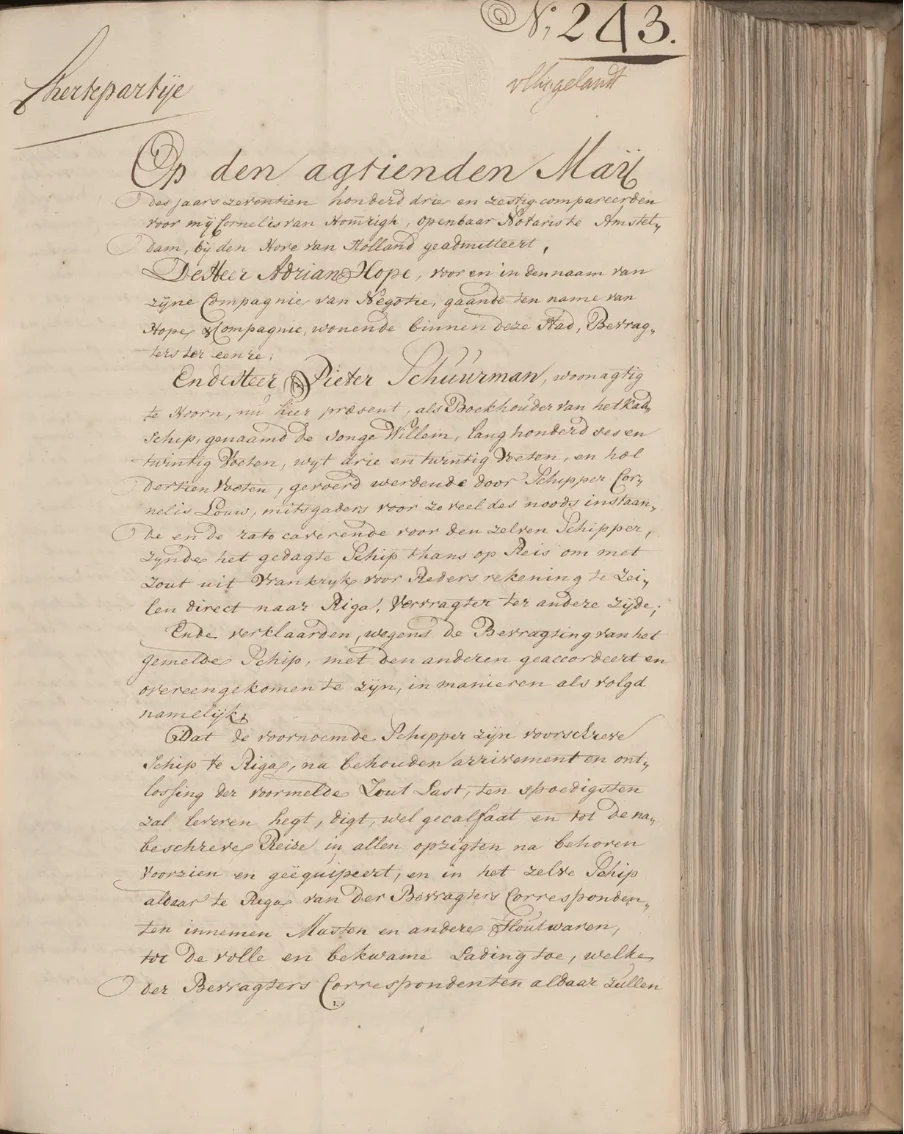 N:, 243.
Chertepartije
Op den agtienden Maÿ
des jaars zeventien honderd drie en zestig compareerden
voor mij Cornelis van Homrigh, openbaar Notaris te Amstel,,
dam, bij den Hove van Holland geadmitteert,
De Heer Adrian Hope, voor en in den naam van
zijne Compagnie van Negotie, gaande ten name van
Hope & Compagnie, wonende binnen deze Stad, Bevrag,,
ters ter eenre,
En de Heer Pieter Schuurman, woonagtig
te Hoorn, nu hier præsent, als Boekhouder van het Kat,,
Schip, genaamd de Jonge Willem, lang honderd ses en
twintig Voeten, wyt drie en twintig Voeten, en hol
dertien Voeten, gevoerd werdende door Schipper Cor,,
nelis Louw, mitsgaders voor zo veel des noods instaan,,
de en de rato caverende voor den zelven Schipper,
zijnde het gedagte Schip thans op Reis om met
Zout uit Vrankryk voor Reders rekening te zei,,
len direct naar Riga, Vervragter ter andere zijde;
Ende verklaarden, wegens de Bevragting van het
gemelde Schip, met den anderen geaccordeert en
overeengekomen te zijn, in manieren als volgd
namelijk,
Dat de voornoemde Schipper zijn voorschreve
Schip te Riga, na behouden arrivement en ont,,
lossing der voormelde Zout Last, ten spoedigsten
zal leveren hegt, digt, wel gecalfaat en tot de na,,
beschreve Reize in allen opzigten na behoren
voorzien en geëquipeert, en in het zelve Schip
aldaar te Riga van der Bevragters Corresponden,,
ten innemen Masten en andere Houtwaren,
tot de volle en bekwame Lading toe, welke
der Bevragters Correspondenten aldaar zullen